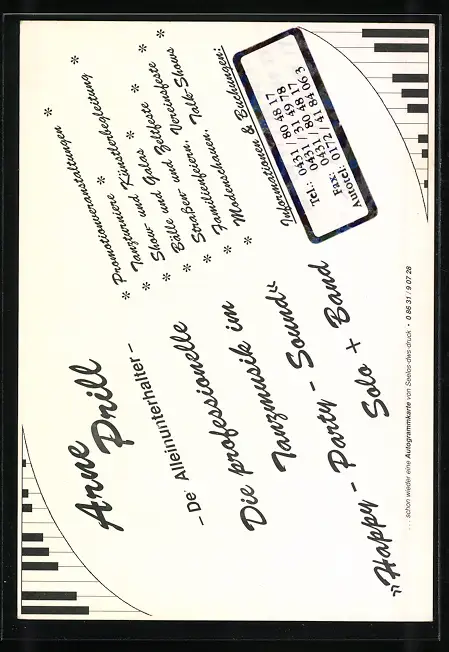 Arne
Prill
- De' Alleinunterhalter -
Die professionelle
Tanzmusik im
»Happy - Party - Sound«
Solo + Band
* Promotionveranstaltungen *
Tanzturniere Künstlerbegleitung
* Show- und Galas *
* Bälle und Zeltfeste *
* Straßen- und Vereinsfeste *
* Familienfeiern, Talk-Shows
* Modenschauen,
Informationen & Buchungen:
Tel.: 0431/ 80 48 17
0431/ 31 49 78
Fax: 0431/ 80 48 17
Autotel. 0172/ 41 84 063
... schon wieder eine Autogrammkarte von Seelos-dws-druck • 0 86 31 / 9 07 28